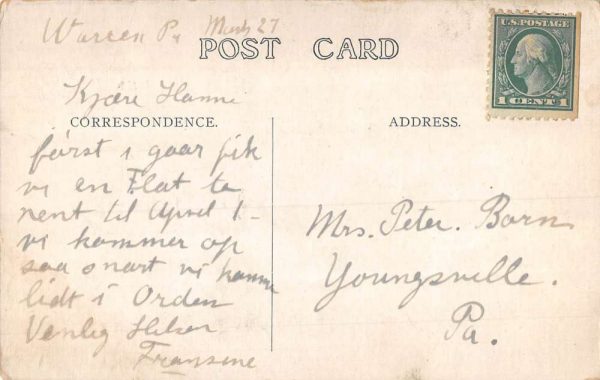 Warren Pa March 27
POST CARD
U.S. POSTAGE
1 CENT 1
Kjære Hanne
CORRESPONDENCE.
ADDRESS.
først i gaar fik
vi en Flat te
nent til April 1-
vi kommer op
saa snart vi kommer
lidt i Orden
Venlig Hilsen
Fransine
Mrs. Peter. Born
Youngsville.
Pa.